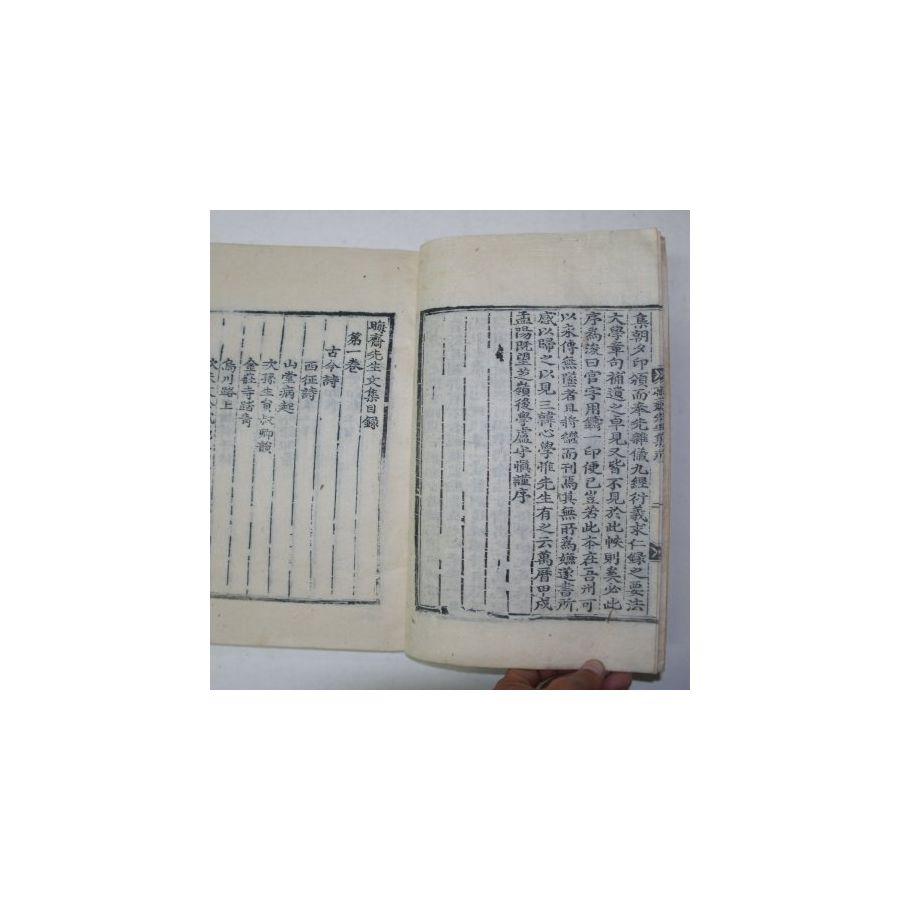 集朝夕印頒而奉先雜儀九經衍義求仁錄之要法
大學章句補遺之卓見又皆不見於此帙則奚必此
序爲浚曰官字用鑄一印便已豈若此本在吾州可
以永傳無墜者且將繼而刊焉其無所爲嫌遂書所
感以歸之以見二諱心學惟先生有之云萬曆甲戌
孟陽旣望芝嶺後學盧守愼謹序
晦齋先生文集目錄
第一卷
古今詩
西征詩
山堂病起
次孫生育叔卿韻
金莊寺踏靑
烏川路上